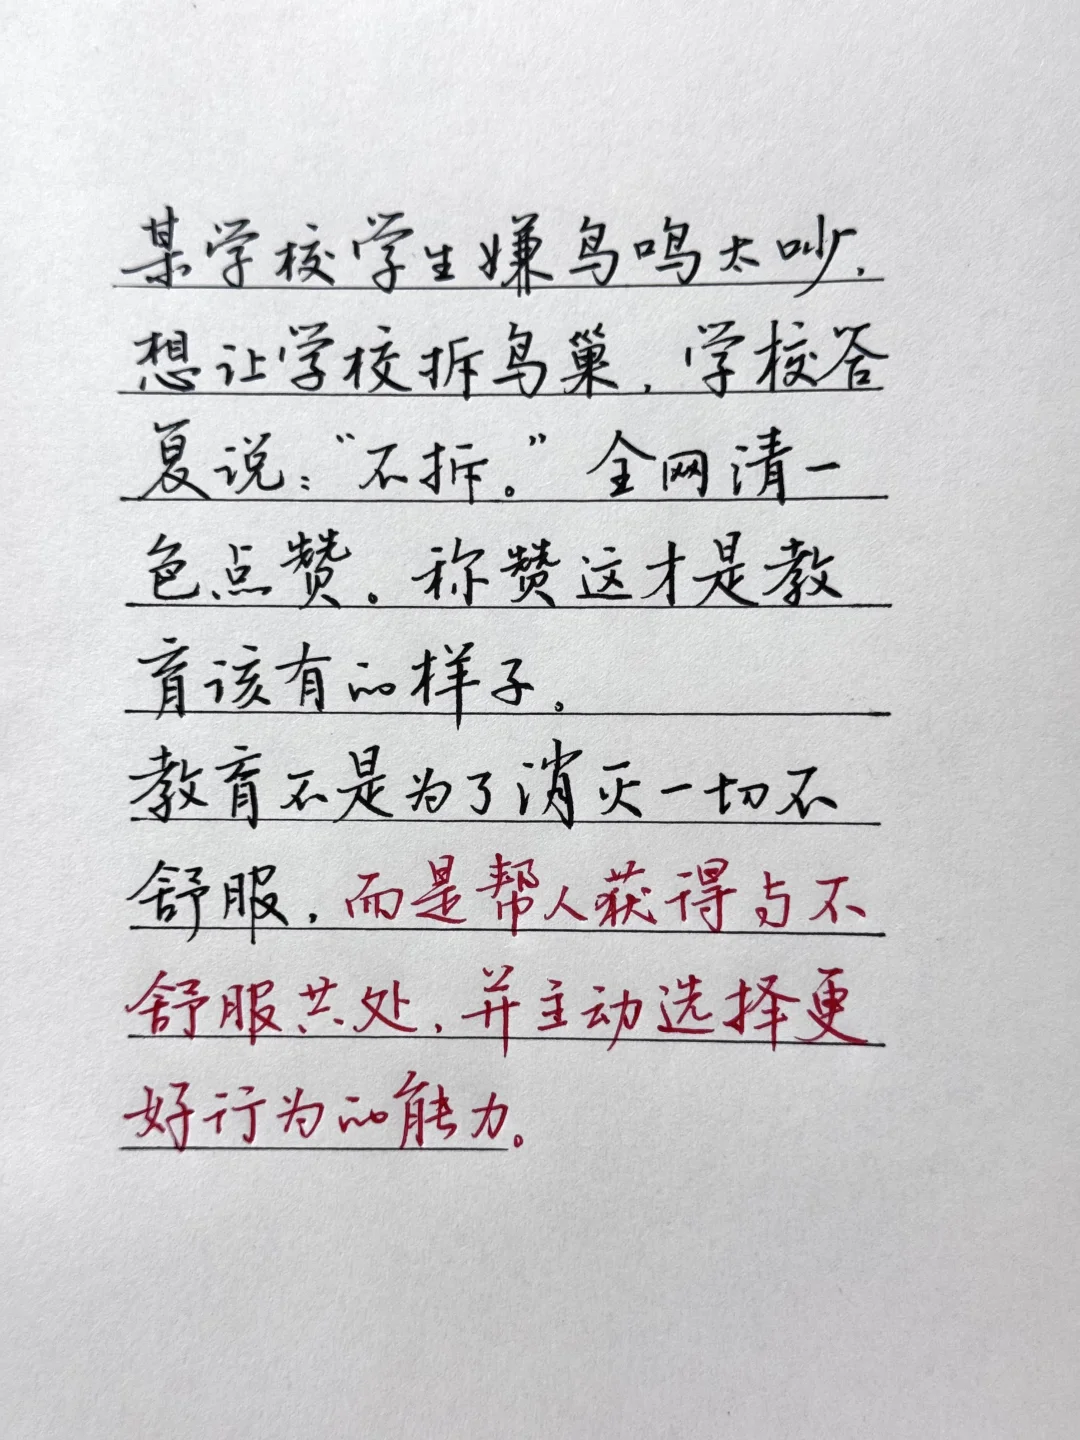 某学校学生嫌鸟鸣太吵，
想让学校拆鸟巢，学校答
复说：“不拆。”全网清一
色点赞。称赞这才是教
育该有的样子。
教育不是为了消灭一切不
舒服，而是帮人获得与不
舒服共处，并主动选择更
好行为的能力。